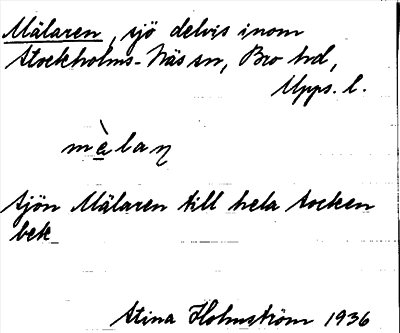 Mälaren, sjö delvis inom
Stockholms-Näs sn, Bro hd,
Upps. l.
mὲlaɳ
sjön Mälaren till hela socken
bek
Stina Holmström 1936